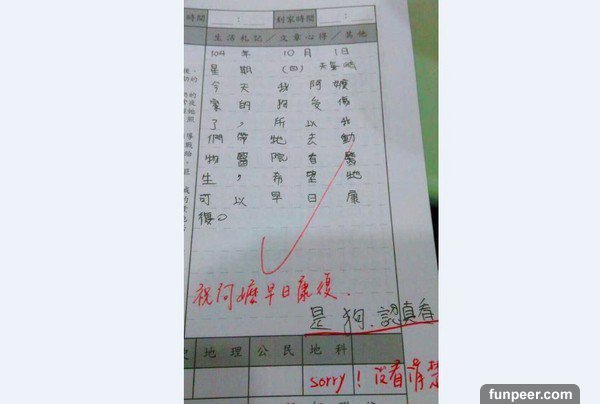 時間 : 到家時間 :
生活札記／文章心得／其他
104 年 10 月 1 日
星期 (四) 天氣晴
今天我阿嬤
家的狗受傷
了，所以我
們帶牠去動
物醫院看醫
生，希望牠
可以早日康
復。
祝阿嬤早日康復.
是狗.認真看
地理 公民 地科
sorry！沒看清楚
funpeer.com